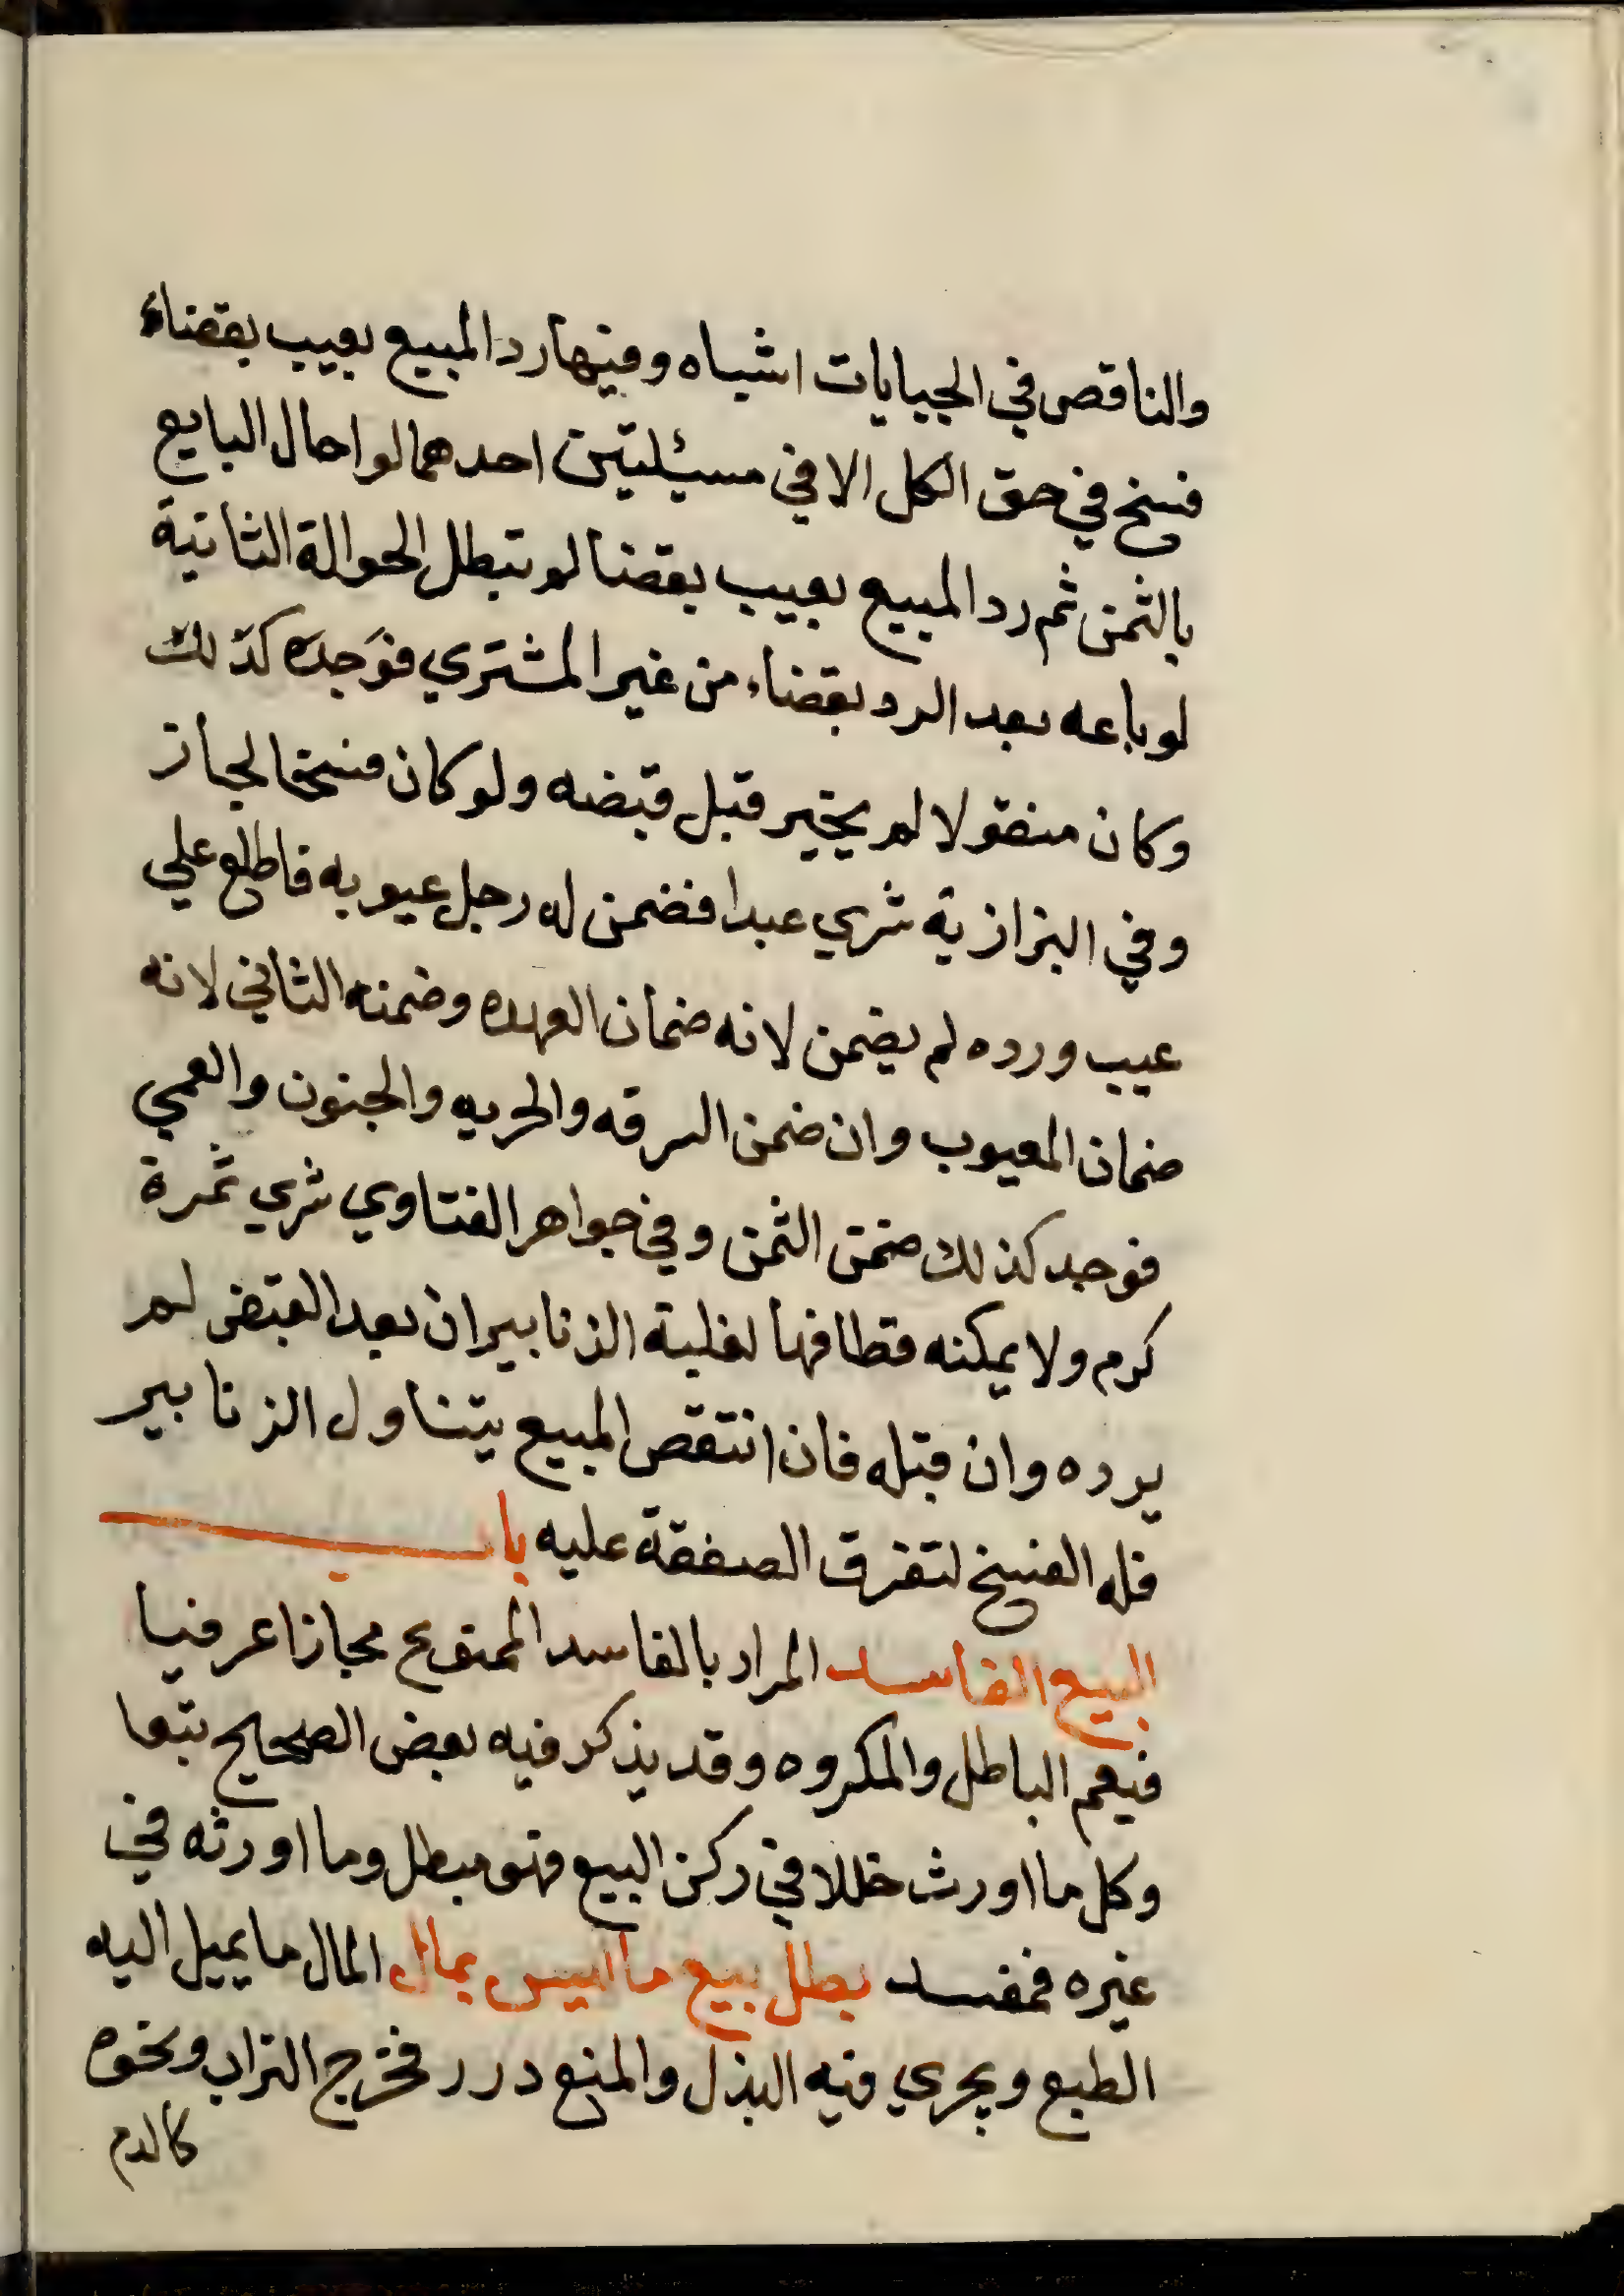 والناقص في الجبايات اشباه وفيها رد المبيع بعيب بقضاء
فسخ في حق الكل الا في مسئلتين احدهما لو احال البايع
بالثمن ثم رد المبيع بعيب بقضا لم تبطل الحوالة الثانية
لو باعه بعد الرد بقضاء من غير المشتري فوَجدَه كذلك
وكان منقولا لم يجز قبل قبضه ولو كان فسخا لجاز
وفي البزازية شري عبدا فضمن له رجل عيوبه فاطلع علي
عيب ورده لم يضمن لانه ضمان العهده وضمنه الثاني لانه
ضمان المعيوب وان ضمن السرقه والحريه والجنون والعمي
فوجد كذلك ضمن الثمن وفي جواهر الفتاوي شري ثمرة
كرم ولا يمكنه قطافها لغلبة الزنابير ان بعد القبض لم
يرده وان قبله فان انتقص المبيع يتناول الزنابير
فله الفسخ لتفرق الصفقة عليه باب
البيع الفاسد المراد بالفاسد الممنوع مجازا عرفيا
فيعم الباطل والمكروه وقد يذكر فيه بعض الصحيح تبعا
وكل ما اورث خللا في ركن البيع فهو مبطل وما اورثه في
غيره فمفسد بطل بيع ما ليس بمال المال ما يميل اليه
الطبع ويجري فيه البذل والمنع درر فخرج التراب ونحوه
كالدم